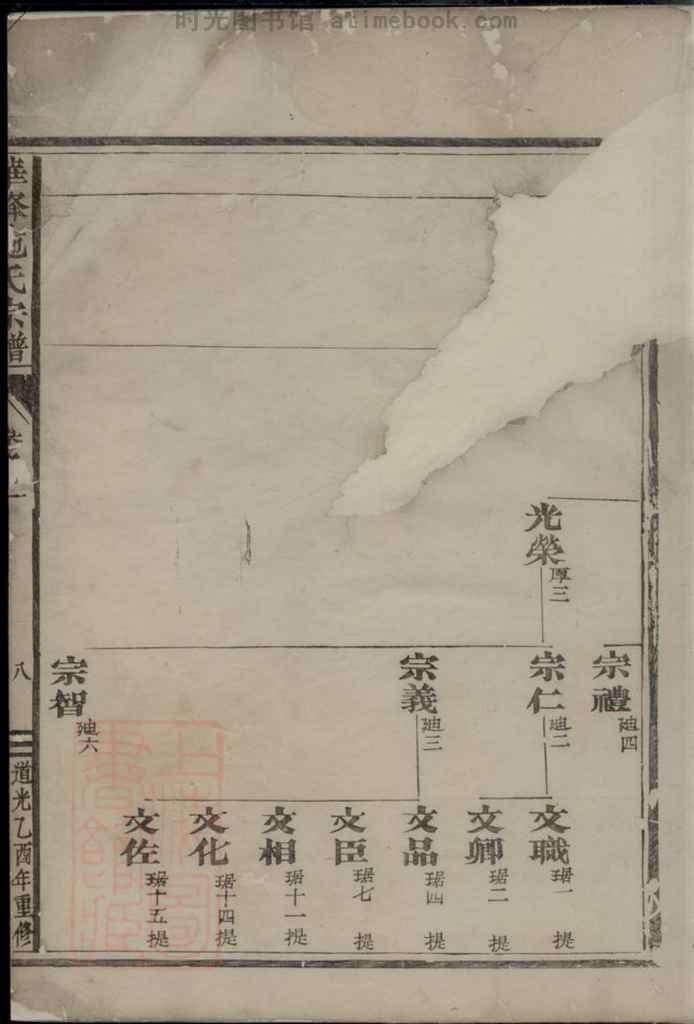 时光图书馆 atimebook.com
光榮 厚三
宗禮 廸四
宗仁 廸二
宗義 廸三
宗智 廸六
文職 琚一 提
文卿 琚二 提
文品 琚四 提
文臣 琚七 提
文相 琚十一 提
文化 琚十四 提
文佐 琚十五 提
施氏宗譜
八
道光乙酉年重修